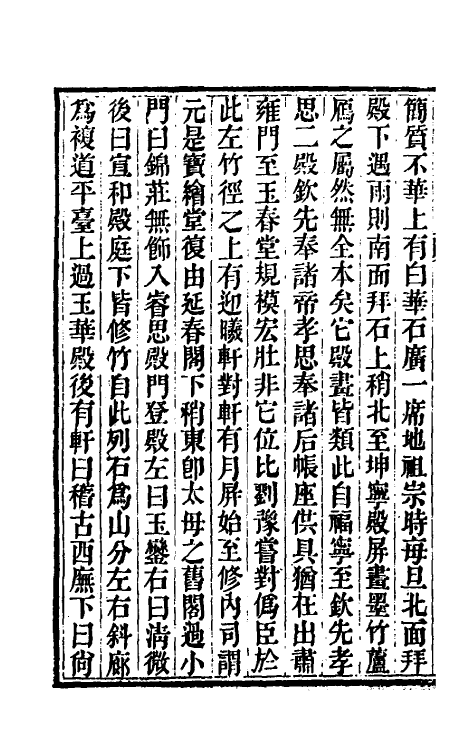 簡質不華上有白華石廣一席地祖宗時每旦北面拜
殿下遇雨則南面拜石上稍北至坤寧殿屏畫墨竹蘆
鴈之屬然無全本矣它殿畫皆類此自福寧至欽先孝
思二殿欽先奉諸帝孝思奉諸后帳座供具猶在出肅
雍門至玉春堂規模宏壯非它位比劉豫嘗對偽臣於
此左竹徑之上有迎曦軒對軒有月屏始至修內司謂
元是寶繪堂復由延春閣下稍東卽太母之舊閣過小
門曰錦莊無飾入睿思殿門登殿左曰玉鑾右曰清微
後曰宣和殿庭下皆修竹自此列石為山分左右斜廊
為複道平臺上過玉華殿後有軒曰稽古西廡下曰尙